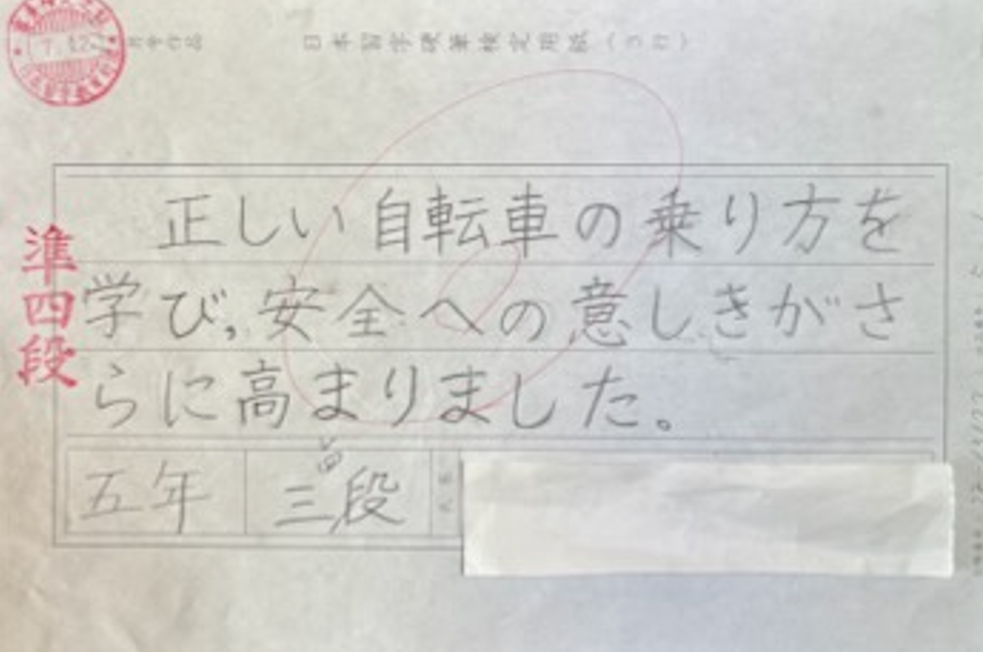 日本習字硬筆検定用紙
正しい自転車の乗り方を
学び,安全への意しきがさ
らに高まりました。
準四段
五年
三段